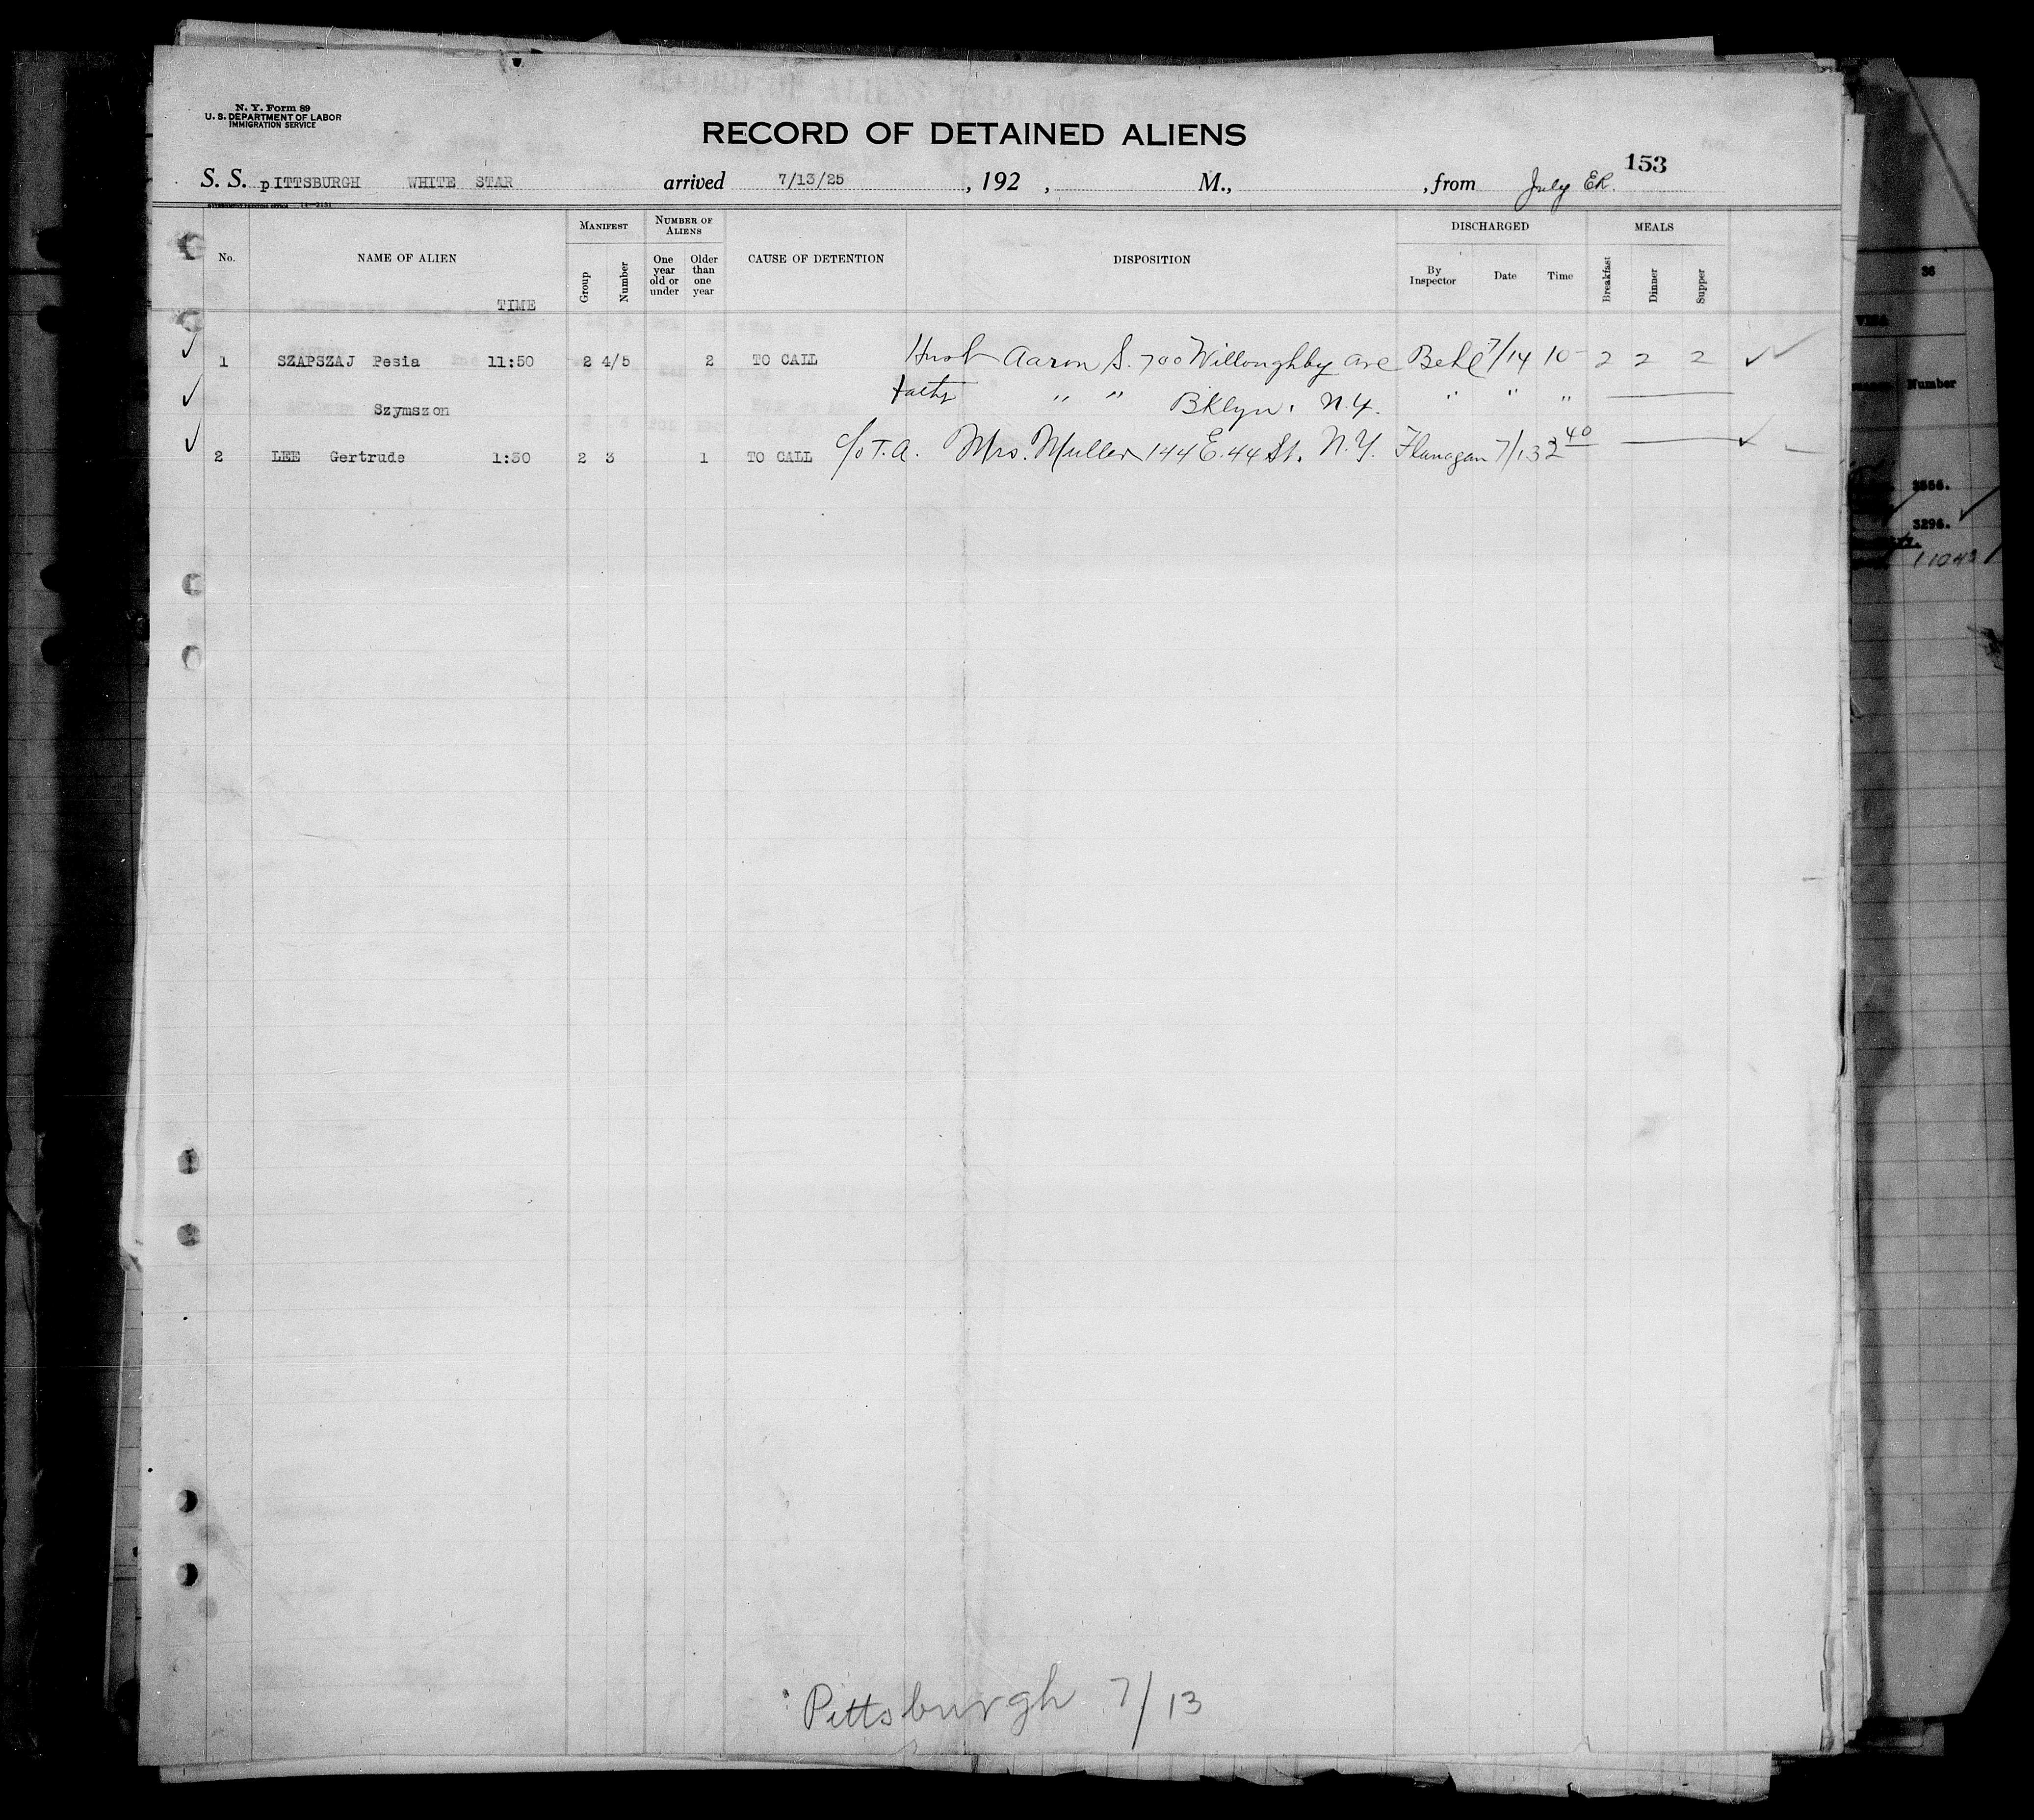 N. Y. Form 89
U. S. DEPARTMENT OF LABOR
IMMIGRATION SERVICE
RECORD OF DETAINED ALIENS
153
S. S. pITTSBURGH WHITE STAR arrived 7/13/25 , 192 , M., , from July ER.
MANIFEST NUMBER OF ALIENS DISCHARGED MEALS
No. NAME OF ALIEN TIME Group Number One year old or under Older than one year CAUSE OF DETENTION DISPOSITION By Inspector Date Time Breakfast Dinner Supper
1 SZAPSZAJ Pesia 11:50 2 4/5 2 TO CALL Husb Aaron S. 700 Willoughby ave 7/14 10- 2 2 2 ✓ ✓
Szymszon Father " " Bklyn. N.Y. " " "
2 LEE Gertrude 1:30 2 3 1 TO CALL c/o T.A. Mrs. Muller 144 E. 44 St. N.Y. Flanagan 7/13 2 40 ✓
Pittsburgh 7/13
36
VISA
Number
3296.
11043